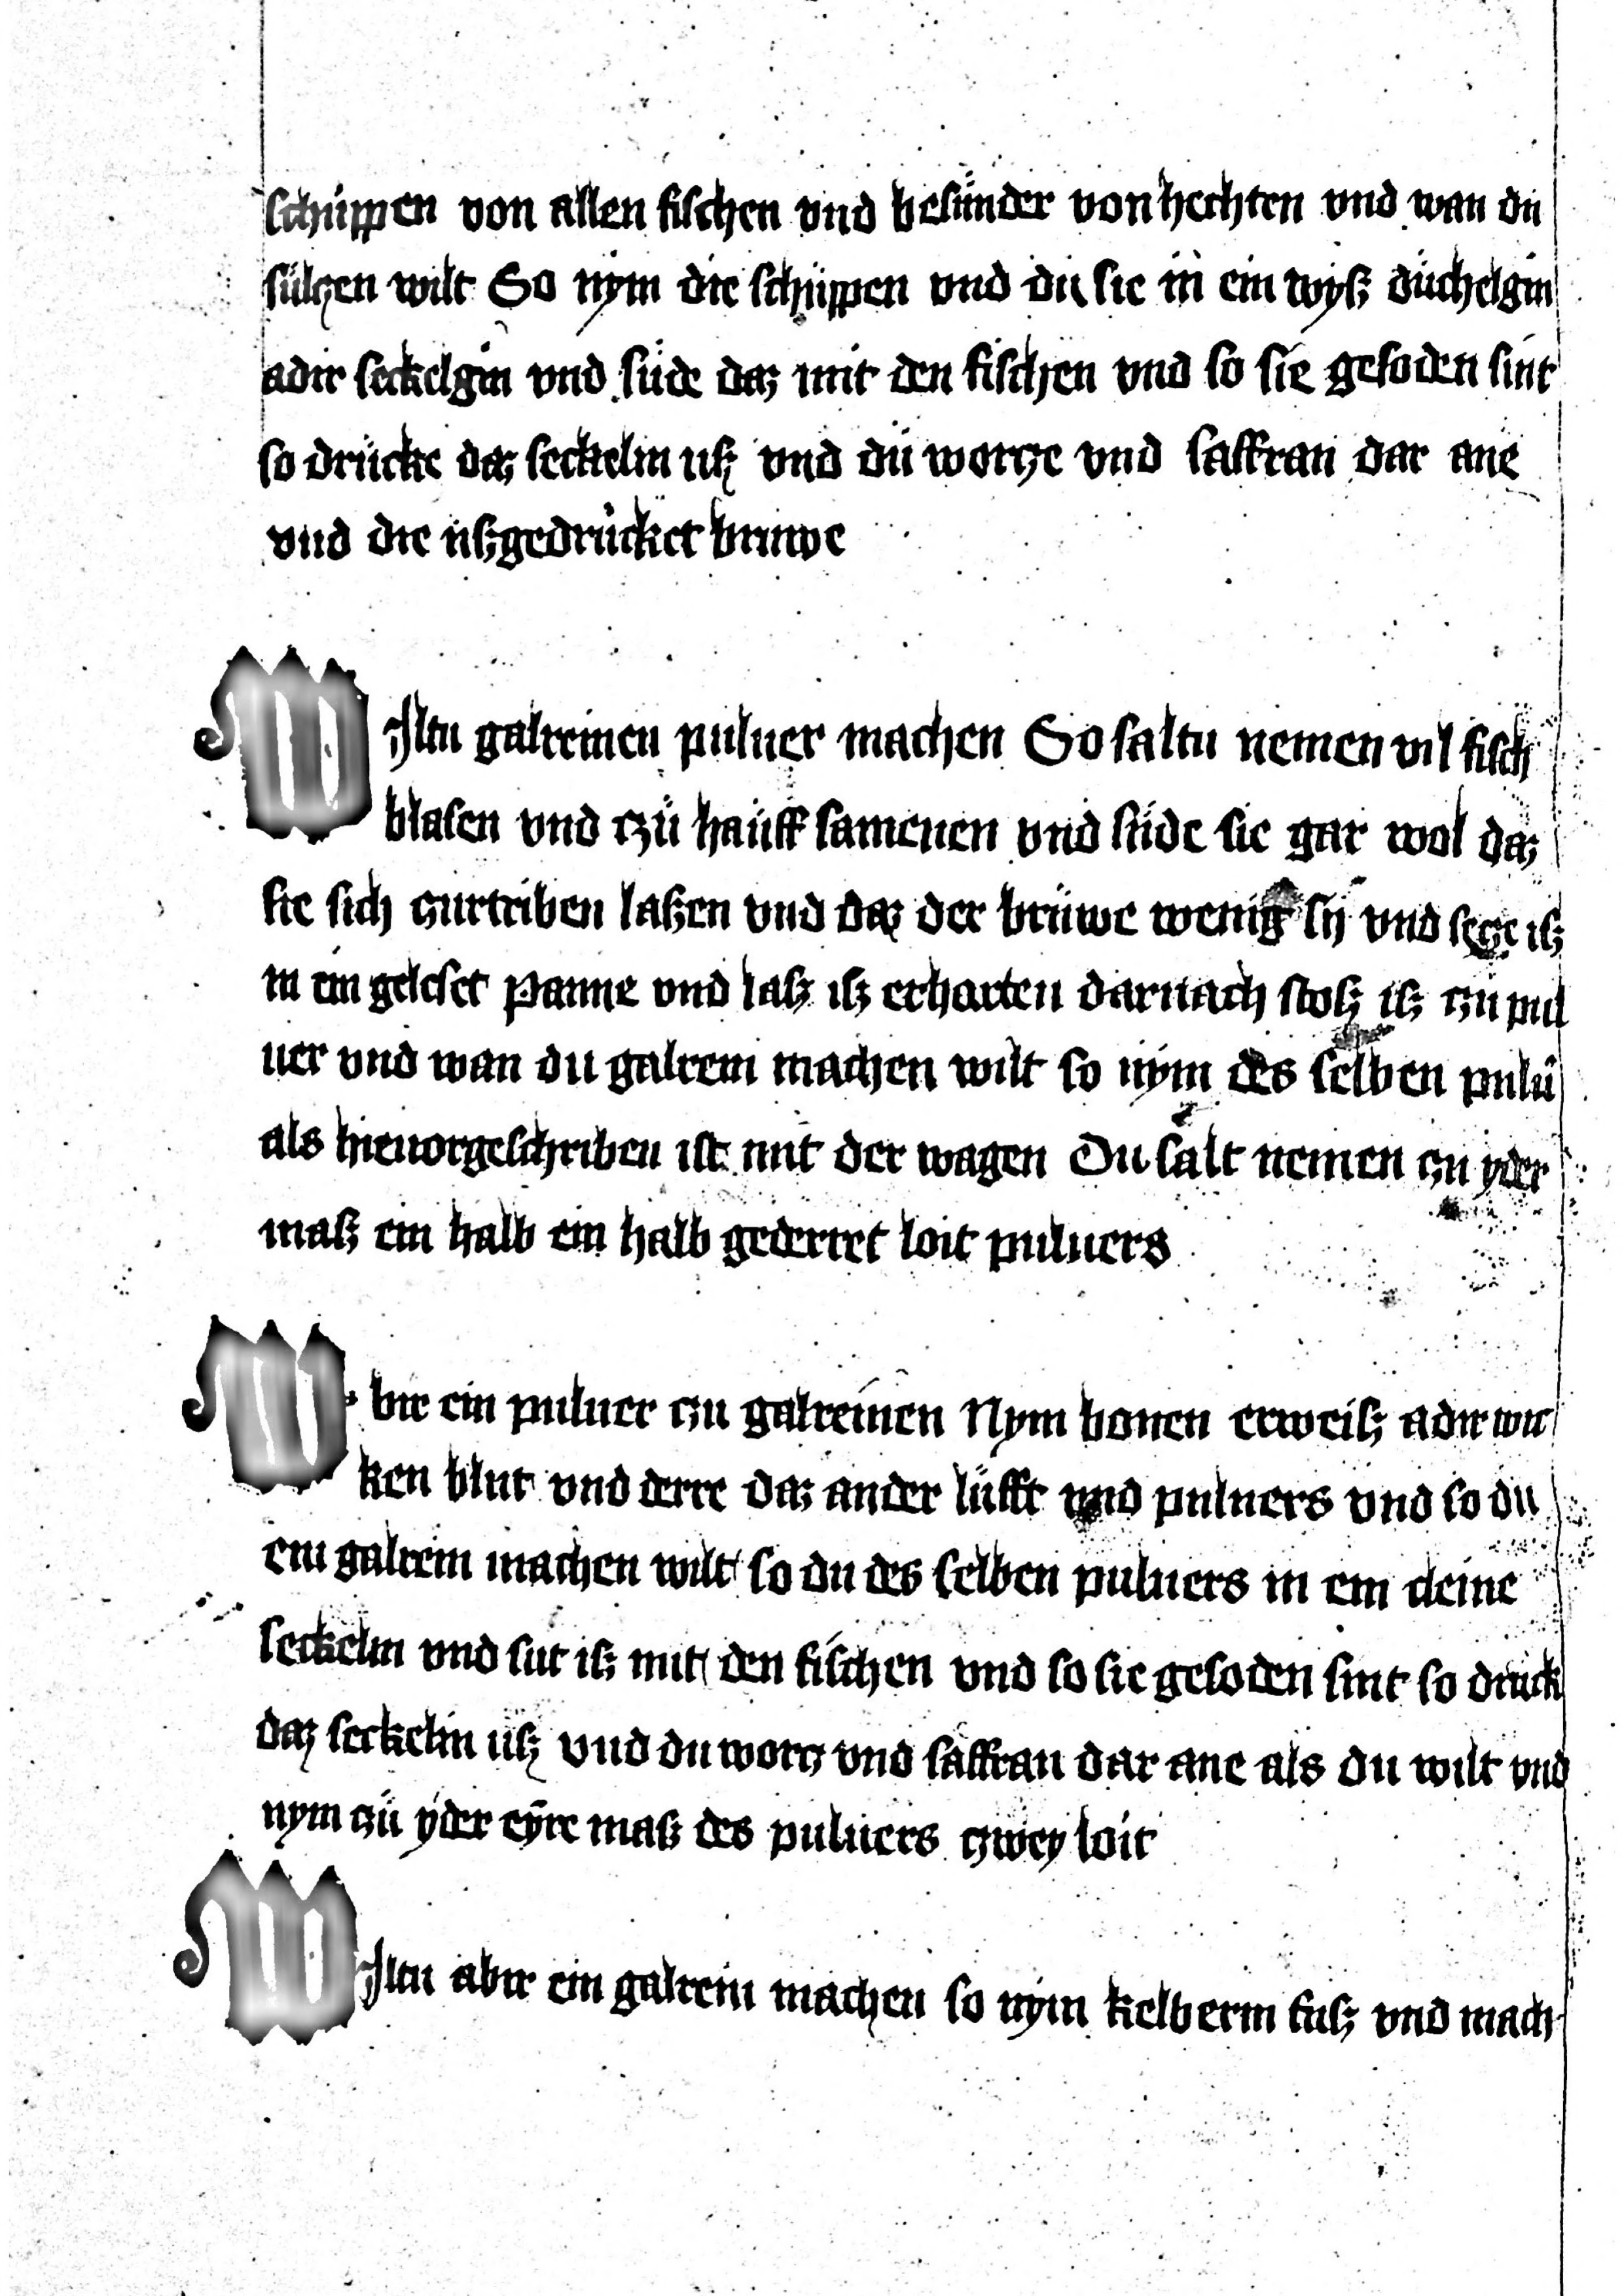 schüppen von allen fischen vnd besünder von hechten vnd wan du
sülczen wilt So nym die schüppen vnd du sie in ein wyß düchelgin
adir seckelgin vnd süde daz mit den fischen vnd so sie gesoden sint
so drücke daz seckelin uß vnd dü worcze vnd saffran dar ane
vnd die ußgedrücket bruwe
WIltu galreinen puluer machen So saltu nemen vil fisch
blasen vnd czü hauff samenen vnd süde sie gar wol daz
sie sich zurtriben laßen vnd daz der brüwe wenig sy vnd secze iß
in ein geleset panne vnd laß iß erharten darnach stoß iß czu pul
uer vnd wan du galrein machen wilt so nym des selben pulü
als hieuorgeschriben ist mit der wagen Du salt nemen czu yder
maß ein halb ein halb gederret loit puluers
W bir ein puluer czu galreinen Nym bonen erweiß adir wic
ken blut vnd derre daz ander lüfft vnd puluers vnd so du
ein galrein machen wilt so du des selben puluers in ein cleine
seckelin vnd sut iß mit den fischen vnd so sie gesoden sint so druck
daz seckelin uß vnd du worcz vnd saffran dar ane als du wilt vnd
nym czü yder eyre maß des puluers czwey loit
WIltu abir ein galrein machen so nym kelberin fuß vnd mach